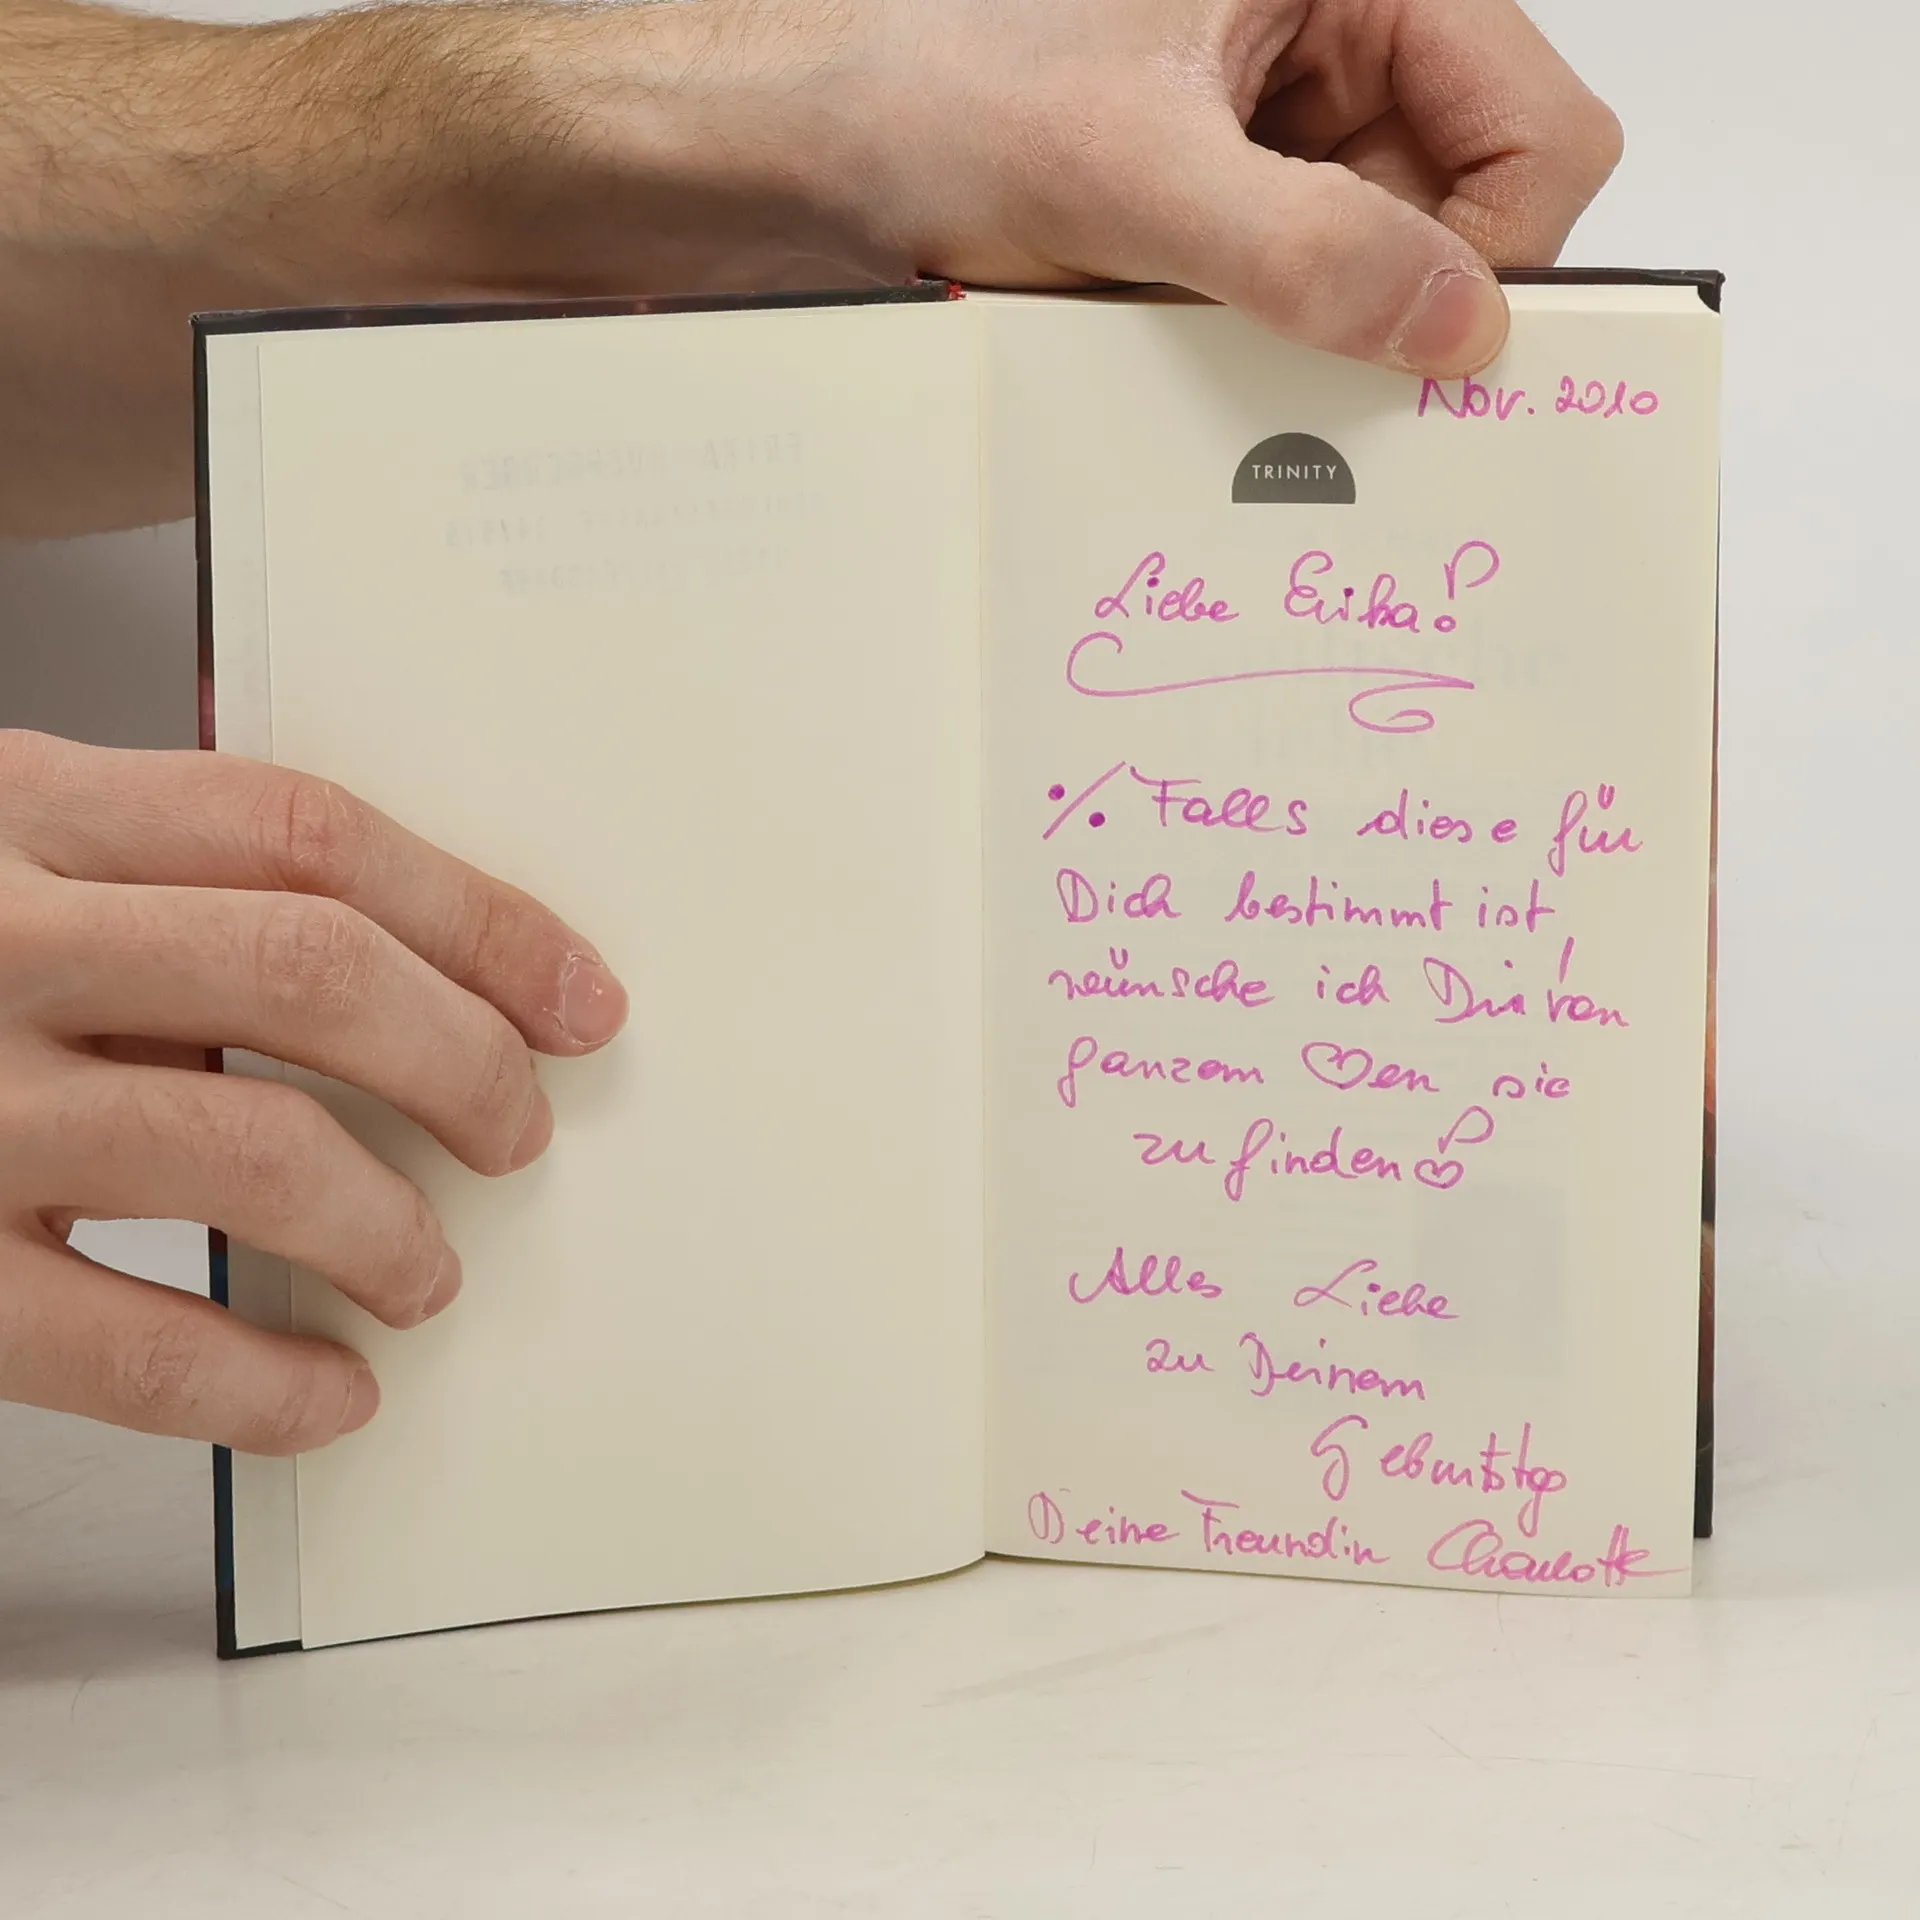 Nov. 2010
TRINITY
Liebe Erika!
./. Falls diese für
Dich bestimmt ist,
wünsche ich Dir von
ganzem ♡en sie
zu finden!
Alles Liebe
zu Deinem
Geburtstag
Deine Freundin Charlotte